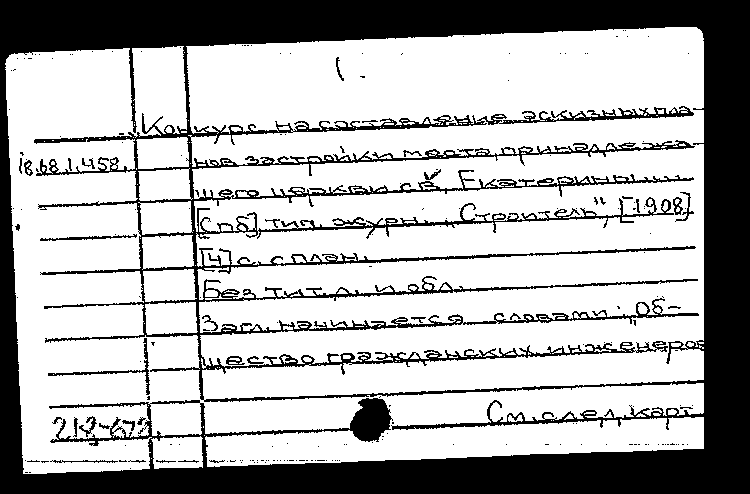 1.
Конкурс на составление эскизных пла-
18.68.1.458. нов застройки места, принадлежа-
щего церкви св. Екатерины....
[Спб] тип. журн. „Строитель", [1908]
[4] с. с план.
Без тит. л. и обл.
Загл. начинается словами: „Об-
щество гражданских инженеров
См. след. карт